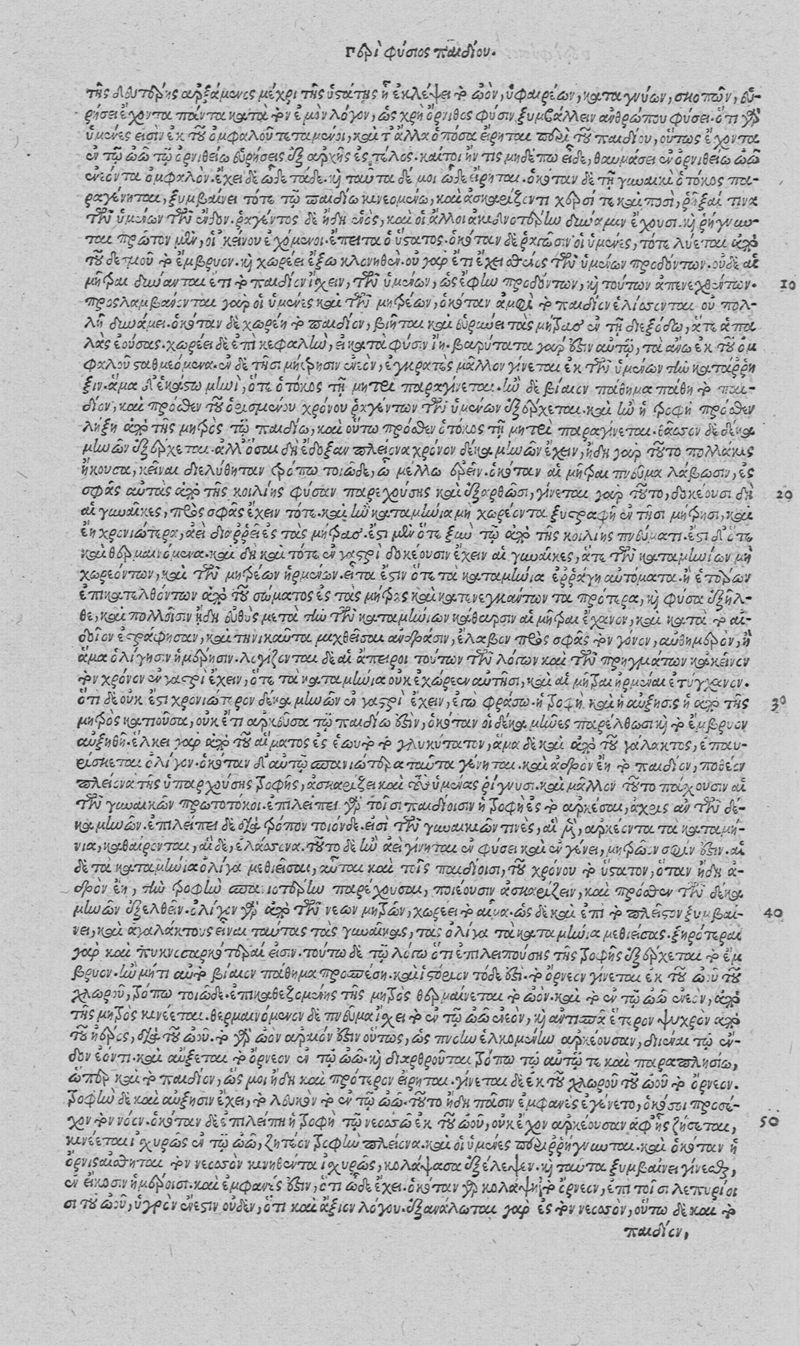 Περὶ φύσιος παιδίου.
τῆς δευτέρης ἀρξάμενος μέχρι τῆς ὑστάτης ᾗ ἐκλέψει τὸ ὠὸν, ὑφαιρέων, καταγνύων, σκοπῶν, εὑ-
ρήσει ἔχοντα πάντα κατὰ τὸν ἐμὸν λόγον, ὡς χρὴ ὄρνιθος φύσιν ξυμβάλλειν ἀνθρώπου φύσει. ὅτι γὰρ
ὑμένες εἰσὶν ἐκ τοῦ ὀμφαλοῦ τεταμένοι, καὶ τἄλλα ὁπόσα εἴρηται περὶ τοῦ παιδίου, οὕτως ἔχοντα
ἐν τῷ ὠῷ τῷ ὀρνιθείῳ εὑρήσεις ἐξ ἀρχῆς ἐς τέλος. καίτοι ἤν τις μηδέπω εἶδε, θαυμάσει ἐν ὀρνιθείῳ ὠῷ
ἐνεόντα ὀμφαλόν. ἔχει δὲ ὧδε τάδε. καὶ ταῦτα δέ μοι ὧδε εἴρηται. ὁκόταν δὲ τῇ γυναικὶ ὁ τόκος πα-
ραγένηται, ξυμβαίνει τότε τῷ παιδίῳ κινεομένῳ, καὶ ἀσκαρίζοντι χερσί τε καὶ ποσὶ, ῥῆξαί τινα
τῶν ὑμένων τῶν ἔνδον. ῥαγέντος δὲ ἤδη ἑνὸς, καὶ οἱ ἄλλοι ἀκιδνοτέρην δύναμιν ἔχουσι. καὶ ῥήγνυν-
ται πρῶτον μὲν, οἱ κείνου ἐχόμενοι. ἔπειτα ὁ ὕστατος. ὁκόταν δὲ ῥαγῶσιν οἱ ὑμένες, τότε λύεται ἀπὸ
τοῦ δεσμοῦ τὸ ἔμβρυον. καὶ χωρέει ἔξω κλονηθέν. οὐ γὰρ ἔτι ἔχει σθένος τῶν ὑμένων προδόντων. οὐδὲ αἱ
μῆτραι δύνανται ἔτι τὸ παιδίον ἴσχειν, τῶν ὑμένων, ὡς ἔφην προδόντων, καὶ τούτων ἀπενεχθέντων. 10
προσλαμβάνονται γὰρ οἱ ὑμένες καὶ τῶν μητρέων, ὁκόταν ἀμφὶ τὸ παιδίον ἑλίσσωνται οὐ πολ-
λῇ δυνάμει. ὁκόταν δὲ χωρέῃ τὸ παιδίον, βιῆται καὶ εὐρύνει τὰς μήτρας ἐν τῇ διεξόδῳ, ἅτε ἁπα-
λὰς ἐούσας. χωρέει δὲ ἐπὶ κεφαλὴν, εἰ κατὰ φύσιν ἴῃ. βαρύτατα γάρ ἐστιν αὐτῷ, τὰ ἄνω ἐκ τοῦ ὀμ
φαλοῦ σταθμεόμενα. ἐν δὲ τῇσι μήτρῃσιν ἐνεὸν, ἐγκρατὲς μᾶλλον γίνεται ἐκ τῶν ὑμένων τὴν κατάρρη
ξιν. ἅμα δ' ἑκάστῳ μηνὶ, ὅτε ὁ τόκος τῇ μητρὶ παραγίνεται. ἢν δὲ βίαιον πάθημα πάθῃ τὸ παι-
δίον, καὶ πρόσθεν τοῦ ὁρισμένου χρόνου ῥαγέντων τῶν ὑμένων ἐξέρχεται. καὶ ἢν ἡ τροφὴ πρόσθεν
λήξῃ ἀπὸ τῆς μητρὸς τῷ παιδίῳ, καὶ οὕτω πρόσθεν ὁ τόκος τῇ μητρὶ παραγίνεται. ἔασσον δὲ δέκα
μηνῶν ἐξέρχεται. ἀλλ' ὅσαι δὴ ἔδοξαν πλείονα χρόνον δέκα μηνῶν ἔχειν, ἤδη γὰρ τοῦτο πολλάκις
ἤκουσα, κεῖναι διελύθησαν τρόπῳ τοιῷδε, ᾧ μέλλω ἐρεῖν. ὁκόταν αἱ μῆτραι πνεῦμα λάβωσιν, ἐς
σφᾶς αὐτὰς ἀπὸ τῆς κοιλίης φύσαν παρεχούσης καὶ ἐξαρθῶσι, γίνεται γὰρ τοῦτο, δοκέουσι δὴ 20
αἱ γυναῖκες, πρὸς σφᾶς ἔχειν τότε. καὶ ἢν καταμήνια μὴ χωρέοντα ξυστραφῇ ἐν τῇσι μήτρῃσι, καὶ
ἔῃ χρονιώτερα, ἀεὶ διαρρέει ἐς τὰς μήτρας. ἔστι μὲν ὅτε ξὺν τῷ ἀπὸ τῆς κοιλίης πνεύματι. ἔστι δ' ὅτε
καὶ θερμαινόμενα. καὶ δὴ καὶ τότε ἐν γαστρὶ δοκέουσιν ἔχειν αἱ γυναῖκες, ἅτε τῶν καταμηνίων μὴ
χωρεόντων, καὶ τῶν μητρέων ἠρμένων. εἶτα ἔστιν ὅτε τὰ καταμήνια ἐρράγη αὐτόματα. ἢ ἑτέρων
ἐπικατελθόντων ἀπὸ τοῦ σώματος ἐς τὰς μήτρας καὶ κατενεγκάντων τὰ πρότερα, καὶ φῦσα ἐξῆλ-
θε, καὶ πολλῇσιν ἤδη εὐθὺς μετὰ τὴν τῶν καταμηνίων κάθαρσιν αἱ μῆτραι ἔχανον, καὶ κατὰ τὸ αἰ-
δοῖον ἐστράφησαν, καὶ τηνικαῦτα μιχθεῖσαι ἀνδράσιν, ἔλαβον πρὸς σφᾶς τὸν γόνον, αὐθημερὸν, ἢ
ἅμα ὀλίγῃσιν ἡμέρῃσιν. λογίζονται δὲ αἱ ἄπειροι τούτων τῶν λόγων καὶ τῶν πρηγμάτων κἀκεῖνον
τὸν χρόνον ἐν γαστρὶ ἔχειν, ὅτε τὰ καταμήνια οὐκ ἐχώρεεν αὐτῇσι, καὶ αἱ μῆτραι ἠρμέναι ἐτύγχανον.
ὅτι δὲ οὐκ ἔστι χρονιώτερον δέκα μηνῶν ἐν γαστρὶ ἔχειν, ἐγὼ φράσω. ἡ τροφὴ καὶ ἡ αὔξησις ἡ ἀπὸ τῆς 30
μητρὸς κατιοῦσα, οὐκ ἔτι ἀρκεῦσα τῷ παιδίῳ ἐστὶν, ὁκόταν οἱ δέκα μῆνες παρέλθωσι καὶ τὸ ἔμβρυον
αὐξηθῇ. ἕλκει γὰρ ἀπὸ τοῦ αἵματος ἐς ἑωυτὸ τὸ γλυκύτατον, ἅμα δὲ καὶ ἀπὸ τοῦ γάλακτος, ἐπαυ-
ρίσκεται ὀλίγον. ὁκόταν δ' αὐτῷ σπανιώτερα ταῦτα γένηται. καὶ ἁδρὸν ἔῃ τὸ παιδίον, ποθέον
πλείονα τῆς ὑπαρχούσης τροφῆς, ἀσκαρίζει καὶ τοὺς ὑμένας ῥήγνυσι. καὶ μᾶλλον τοῦτο πάσχουσιν αἱ
τῶν γυναικῶν πρωτοτόκοι. ἐπιλείπει γὰρ τοῖσι παιδίοισιν ἡ τροφὴ ἐς τὸ ἀρκέσαι, ἄχρις ἂν τῶν δέ-
κα μηνῶν. ἐπιλείπει δὲ διὰ τρόπον τοιόνδε. εἰσὶ τῶν γυναικῶν τινὲς, αἳ μὲν, ἀρκέοντα τὰ καταμή-
νια, καθαίρονται, αἱ δὲ, ἐλάσσονα. τοῦτο δὲ ἢν ἀεὶ γίνηται ἐν φύσει καὶ ἐν γένει, μητρῷόν σφιν ἐστίν. αἱ
δὲ τὰ καταμήνια ὀλίγα μεθιεῖσαι, αὗται καὶ τοῖς παιδίοισι, τοῦ χρόνου τὸ ὕστατον, ὅταν ἤδη ἁ-
δρὸν ἔῃ, τὴν τροφὴν σπανιωτέρην παρέχουσαι, ποιεῦσιν ἀσκαρίζειν, καὶ πρόσθεν τῶν δέκα
μηνῶν ἐξελθεῖν. ὀλίγον γὰρ ἀπὸ τῶν νέων μητρῶν, χωρέει τὸ αἷμα. ὡς δὲ καὶ ἐπὶ τὸ πλεῖστον ξυμβαί- 40
νει, καὶ ἀγαλάκτους εἶναι ταύτας τὰς γυναῖκας, τὰς ὀλίγα τὰ καταμήνια μεθιείσας. ξηρότεραι
γὰρ καὶ πυκνοσαρκότεραί εἰσιν. τούτῳ δὲ τῷ λόγῳ ὅτι ἐπιλειπούσης τῆς τροφῆς ἐξέρχεται τὸ ἔμ
βρυον. ἢν μή τι αὐτὸ βίαιον πάθημα προσπέσῃ. καὶ ἱστόριον τόδε ἐστί. τὸ ὄρνεον γίνεται ἐκ τοῦ ὠοῦ τοῦ
χλωροῦ, τρόπῳ τοιῷδε. ἐπικαθεζομένης τῆς μητρὸς θερμαίνεται τὸ ὠόν. καὶ τὸ ἐν τῷ ὠῷ ἐνεὸν, ἀπὸ
τῆς μητρὸς κινέεται. θερμαινόμενον δὲ πνεῦμα ἴσχει τὸ ἐν τῷ ὠῷ ἐνεὸν, καὶ ἀντισπᾷ ἕτερον ψυχρὸν ἀπὸ
τοῦ ἠέρος, διὰ τοῦ ὠοῦ. τὸ γὰρ ὠὸν ἀραιόν ἐστιν οὕτως, ὡς πνοὴν ἑλκομένην ἀρκέουσαν, διϊέναι τῷ ἔν-
δον ἐόντι. καὶ αὔξεται τὸ ὄρνεον ἐν τῷ ὠῷ. καὶ διαρθροῦται τρόπῳ τῷ αὐτῷ τε καὶ παραπλησίῳ,
ὥσπερ καὶ τὸ παιδίον, ὥς μοι ἤδη καὶ πρότερον εἴρηται. γίνεται δὲ ἐκ τοῦ χλωροῦ τοῦ ὠοῦ τὸ ὄρνεον.
τροφὴν δὲ καὶ αὔξησιν ἔχει, τὸ λευκὸν τὸ ἐν τῷ ὠῷ. τοῦτο ἤδη πᾶσιν ἐμφανὲς ἐγένετο, ὁκόσοι προσέ-
χον τὸν νόον. ὁκόταν δὲ ἐπιλείπῃ ἡ τροφὴ τῷ νεοσσῷ ἐκ τοῦ ὠοῦ, οὐκ ἔχον ἀρκέουσαν ἀφ' ἧς ζήσεται, 50
κινέεται ἰσχυρῶς ἐν τῷ ὠῷ, ζητέον τροφὴν πλείονα. καὶ οἱ ὑμένες περιρρήγνυνται. καὶ ὁκόταν ἡ
ὄρνις αἴσθηται τὸν νεοσσὸν κινηθέντα ἰσχυρῶς, κολάψασα ἐξέλεψεν. καὶ ταῦτα ξυμβαίνει γίνεσθαι,
ἐν εἴκοσιν ἡμέρῃσι. καὶ ἐμφανές ἐστιν, ὅτι ὧδε ἔχει. ὁκόταν γὰρ κολάψῃ τὸ ὄρνεον, ἐπὶ τοῖσι λεπυρίοι
σι τοῦ ὠοῦ, ὑγρὸν ἔνεστιν οὐδὲν, ὅτι καὶ ἄξιον λόγου. ἐξανάλωται γὰρ ἐς τὸν νεοσσὸν, οὕτω δὲ καὶ τὸ
παιδίον,